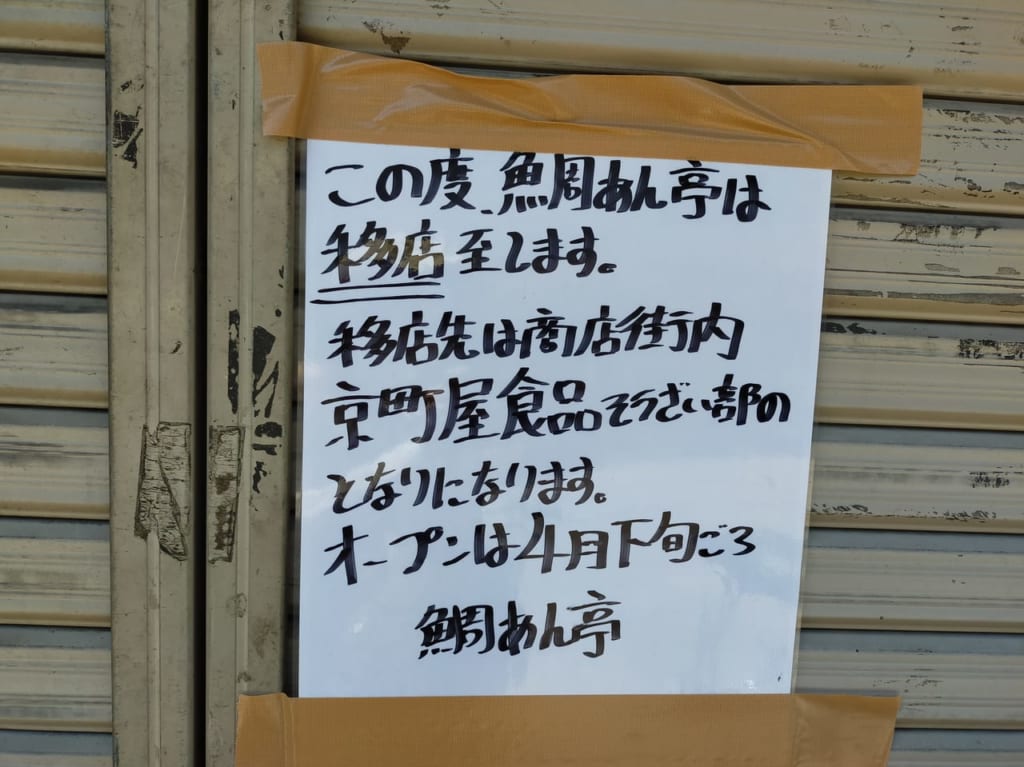 この度、鯛あん亭は
移店至します。
移店先は商店街内
京町屋食品そうざい部の
となりになります。
オープンは4月下旬ごろ
鯛あん亭